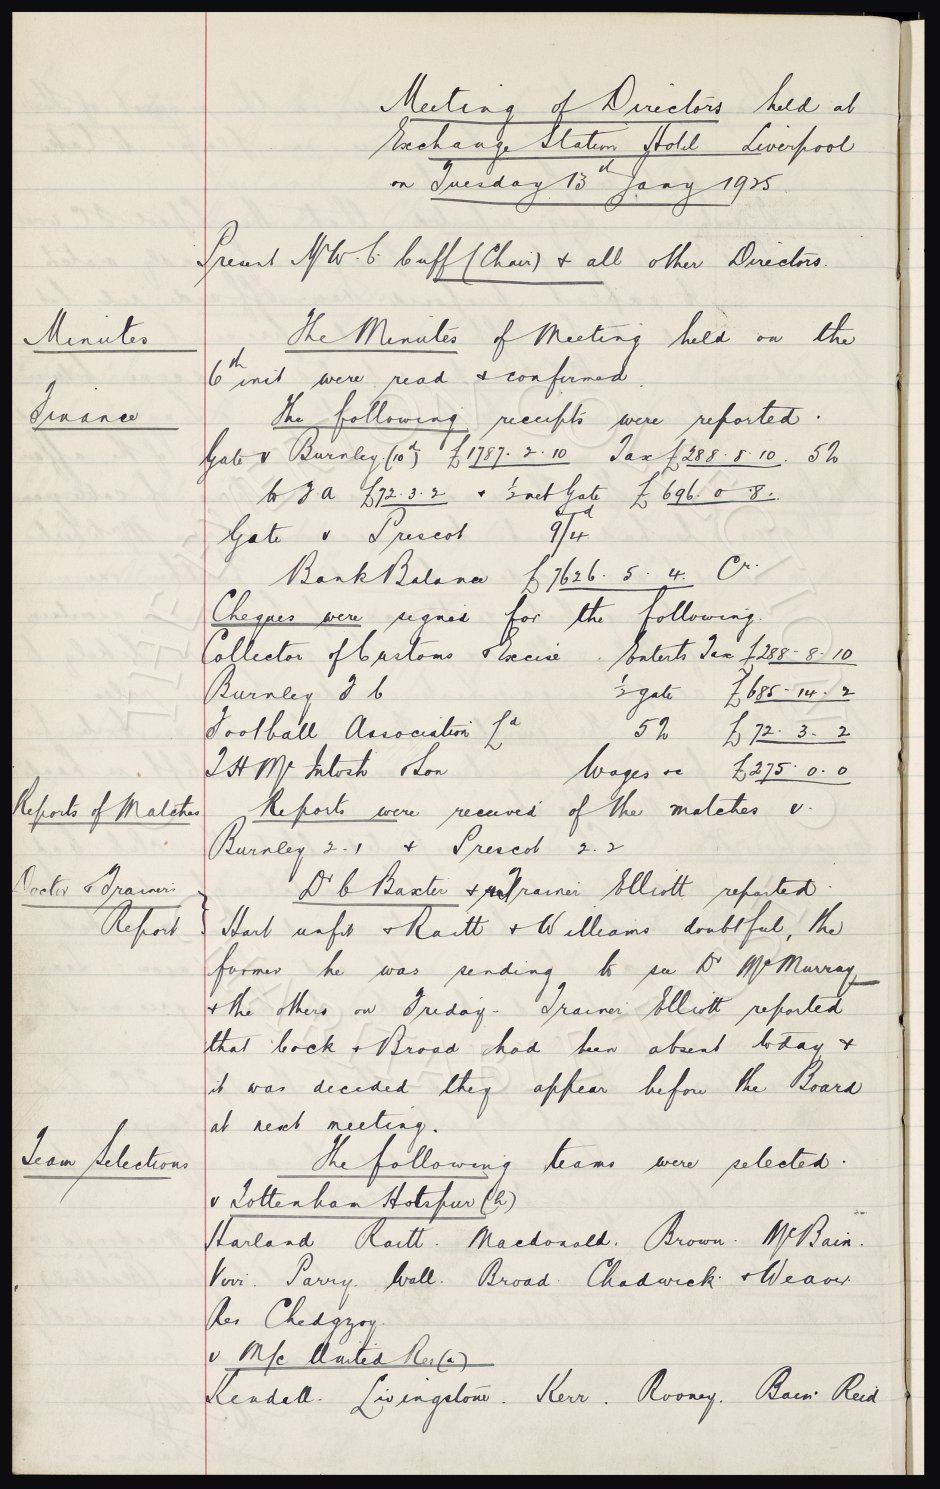 Meeting of Directors held at
Exchange Station Hotel Liverpool
on Tuesday 13th Jany 1925
Present Mr W. C. Cuff (Chair) & all other Directors.
Minutes The Minutes of Meeting held on the
6th inst were read & confirmed.
Finance The following receipts were reported.
Gate v Burnley (10th) £1787. 2. 10 Tax £288. 8. 10. 5%
to F.A £72. 3. 2 & ½ net Gate £696. 0. 8.
Gate v Prescot 9/4d
Bank Balance £7626. 5. 4. Cr.
Cheques were signed for the following.
Collector of Customs & Excise. Enterts Tax £288. 8. 10
Burnley F C ½ gate £685. 14. 2
Football Association Ld 5% £72. 3. 2
T H McIntosh & Son Wages &c £275. 0. 0
Reports of Matches Reports were received of the matches v.
Burnley 2-1 & Prescot 2.2
Doctor & Trainers Dr C Baxter & Trainer Elliott reported
Report Hart unfit & Raitt & Williams doubtful, the
former he was sending to see Dr McMurray
& the others on Friday. Trainer Elliott reported
that Cock & Broad had been absent today &
it was decided they appear before the Board
at next meeting.
Team Selections The following teams were selected.
v Tottenham Hotspur (h)
Harland Raitt. Macdonald. Brown. McBain.
Virr. Parry. Wall. Broad. Chadwick. & Weaver.
Res Chedgzoy.
v M/c United Res (a)
Kendall. Livingstone. Kerr. Rooney. Bain. Reid